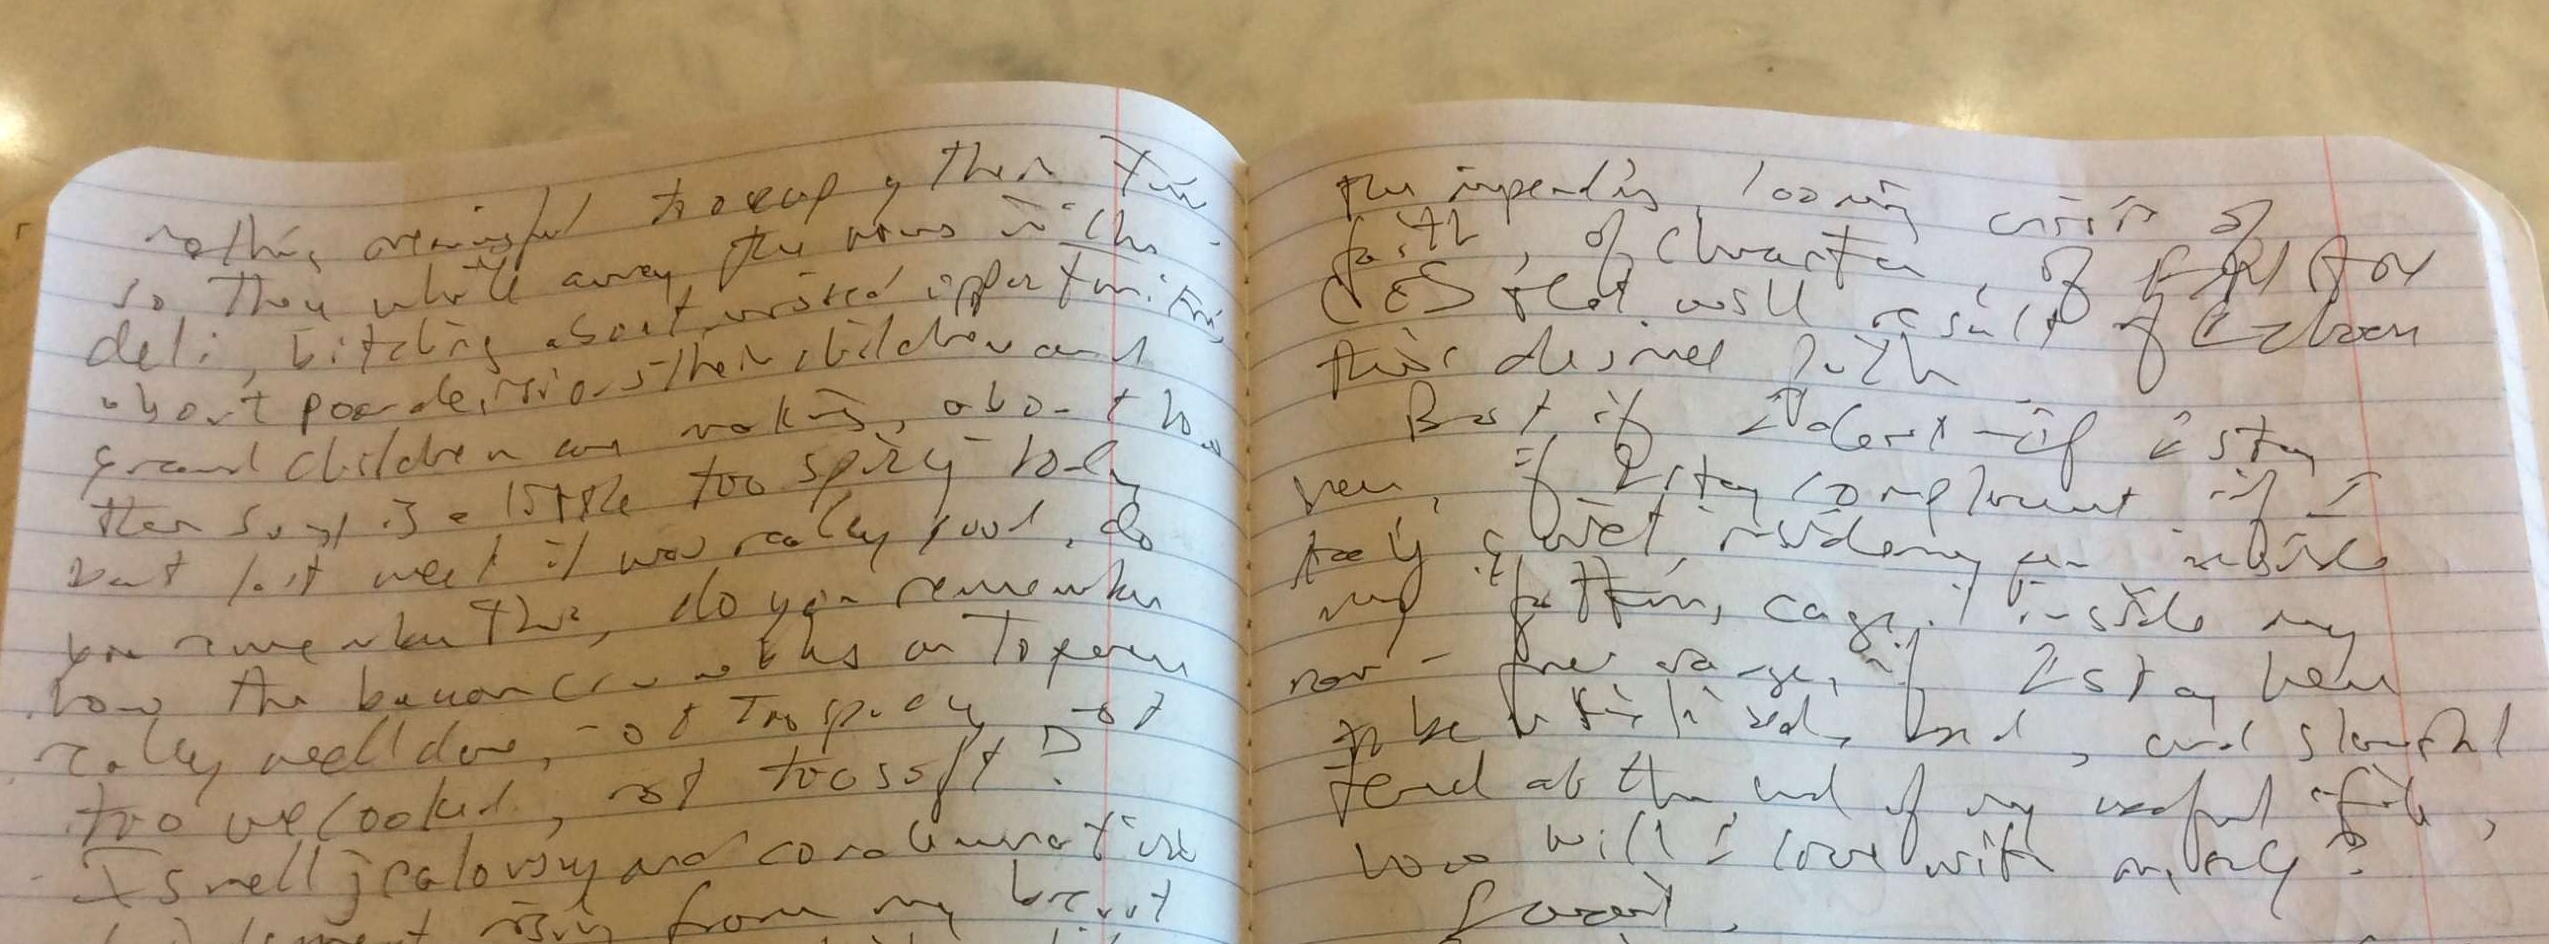 nothing meaningful to occupy their time
so they while away the hours in the
deli, bitching about missed opportunities,
about poor decisions their children and
grand children are making, about how
their soup is a little too spicy today
but last week it was really good, do
you remember that, do you remember
how the bacon crumbles on top were
really well done, not too spicy, not
too well cooked, not too soft?
I smell jealousy and condemnation
rising from my
the impending, looming crisis of
faith, of character, of
that will result if I choose
this path
But if I don't - if I stay
here, if I stay complacent, if I
stay quiet, inside
my cage, inside my
non-free range, if I stay here
to be utilized, and slaugh
tered at the end of my useful life,
how will I live with myself?
I won't.